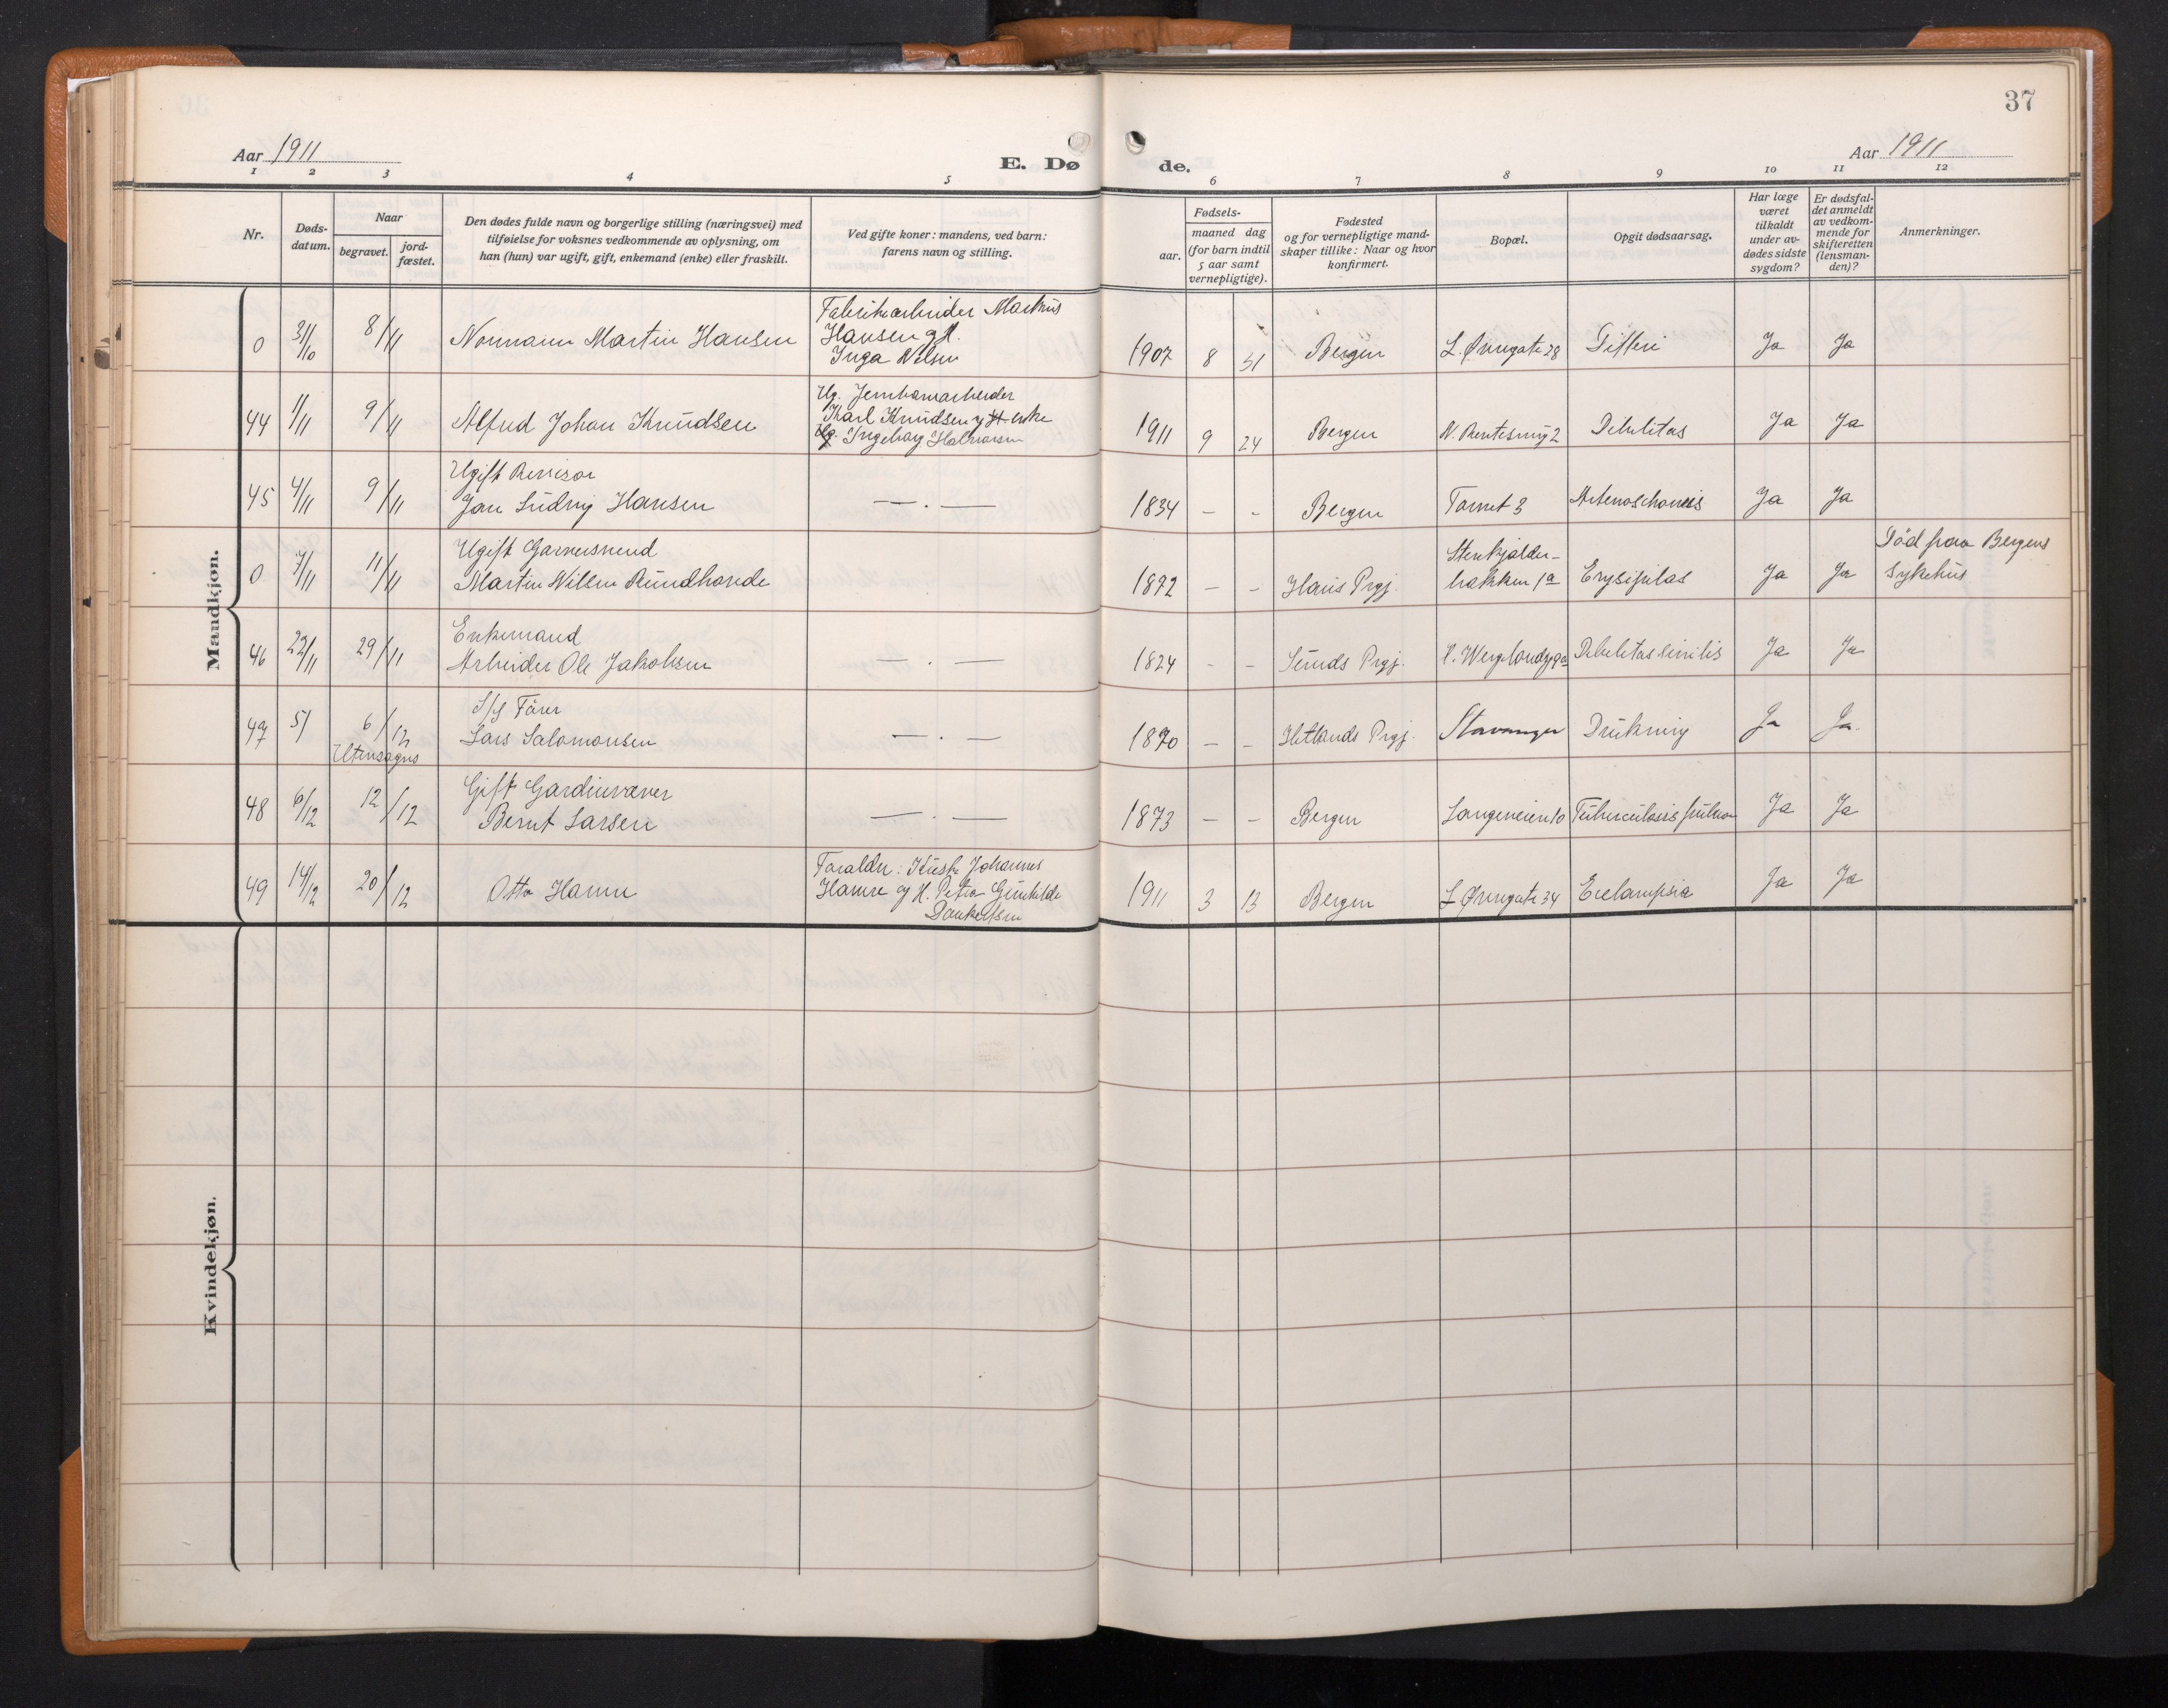 37
Aar 1911
E. Dø
de.
Aar 1911
1 2 3 4 5 6 7 8 9 10 11 12
Nr.
Døds-
datum.
Naar
begravet.
jord-
fæstet.
Den dødes fulde navn og borgerlige stilling (næringsvei) med
tilføielse for voksnes vedkommende av oplysning, om
han (hun) var ugift, gift, enkemand (enke) eller fraskilt.
Ved gifte koner: mandens, ved barn:
farens navn og stilling.
Fødsels-
aar.
maaned dag
(for barn indtil
5 aar samt
vernepligtige).
Fødested
og for vernepligtige mand-
skaper tillike: Naar og hvor
konfirmert.
Bopæl.
Opgit dødsaarsag.
Har læge
været
tilkaldt
under av-
dødes sidste
sygdom?
Er dødsfal-
det anmeldt
av vedkom-
mende for
skifteretten
(lensman-
den)?
Anmerkninger.
Mandkjøn.
0 31/10 8/11 Normann Martin Hansen
Fabrikarbeider Markus
Hansen og H.
Inga Nilsen
1907 8 31 Bergen L. Øvregate 28 Difteri Ja Ja
44 1/11 9/11 Alfred Johan Knudsen
Ug. Jernbanearbeider
Karl Knudsen og enke
Ingeborg Halvorsen
1911 9 24 Bergen 2 Debilitas Ja Ja
45 4/11 9/11 Ugift Revisor
Jan Ludvig Hansen
— . —
1834 - - Bergen Tarnet 3 Ja Ja
0 7/11 11/11 Ugift Garnersvend
Martin Nilsen Rundhovde
1872 - - Haus Prgj. Stenkjelder-
bakken 1a Erysipelas Ja Ja Död paa Bergens
Sykehus
46 22/11 29/11 Enkemand
Arbeider Ole Jakobsen
— . —
1824 - - Sunds Prgj. H. Wergelandsg 9a Debilitas senilis Ja Ja
47 5/ 6/12 S/S Förer
Lars Salomonsen
— . —
1870 - - Hetlands Prgj. Stavanger Drukning Ja Ja
Utensogns
48 6/12 12/12 Gift Gardinvæver
Bernt Larsen
— . —
1873 - - Bergen Langeveien 10 Tuberculosis pulm Ja Ja
49 14/12 20/12 Otto Hamre
Foraldre: Kusk Johannes
Hamre og H. Petra Gunhilde
Dankertsen
1911 3 13 Bergen L Øvregate 34 Eclampsia Ja Ja
Kvindekjøn.